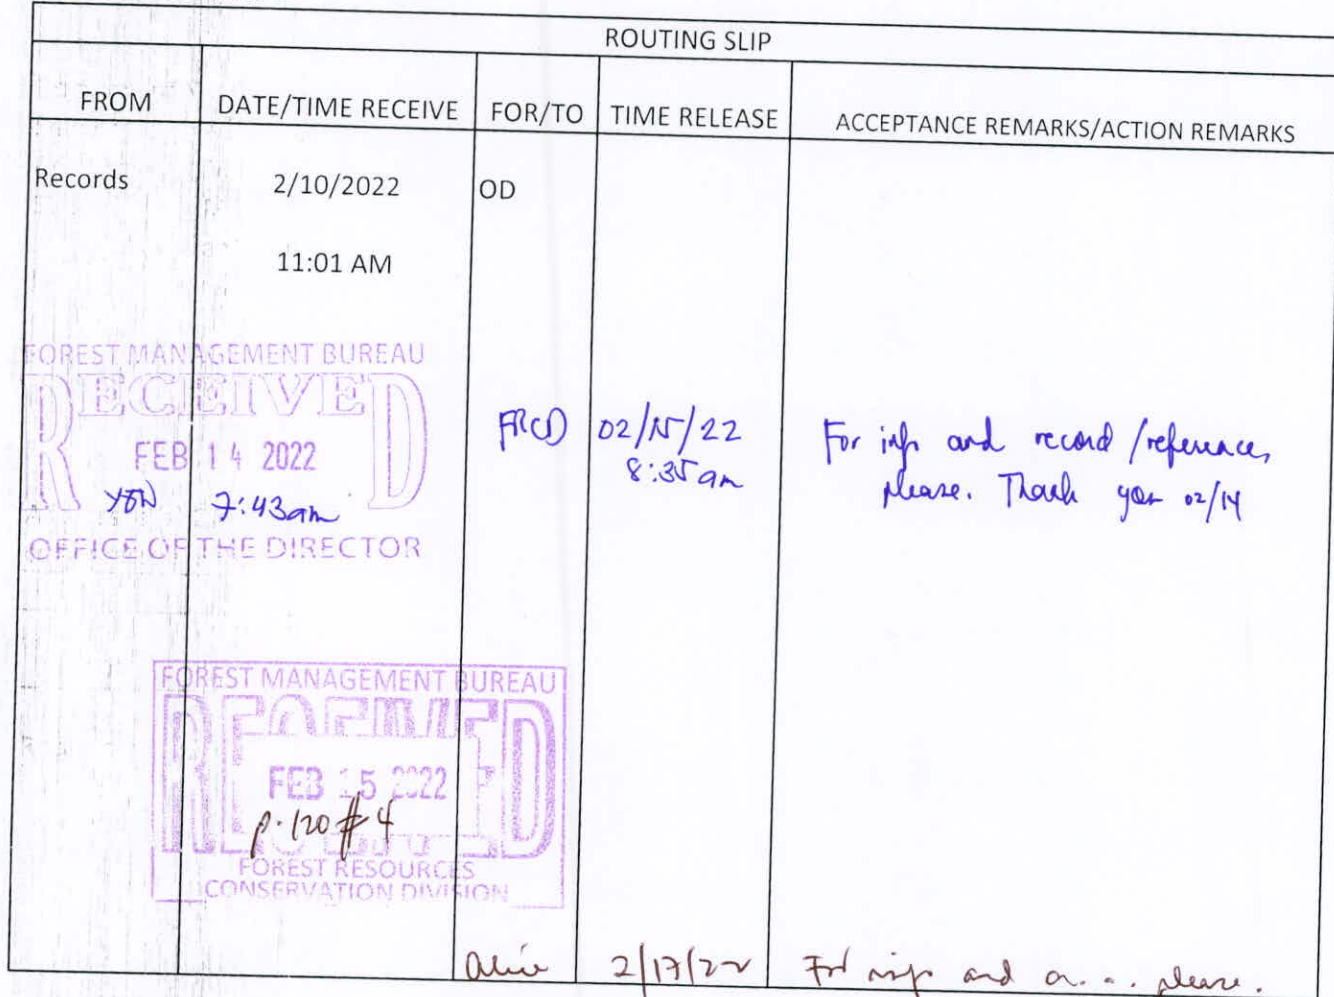 ROUTING SLIP
FROM DATE/TIME RECEIVE FOR/TO TIME RELEASE ACCEPTANCE REMARKS/ACTION REMARKS
Records 2/10/2022 OD
11:01 AM
FOREST MANAGEMENT BUREAU
RECEIVED
FEB 14 2022
7:43am
OFFICE OF THE DIRECTOR
FRCD 02/15/22
8:35am
For info and record/references,
please. Thank you 02/14
FOREST MANAGEMENT BUREAU
RECEIVED
FEB 15 2022
p.120 #4
FOREST RESOURCES
CONSERVATION DIVISION
alice 2/17/22 For info and please.